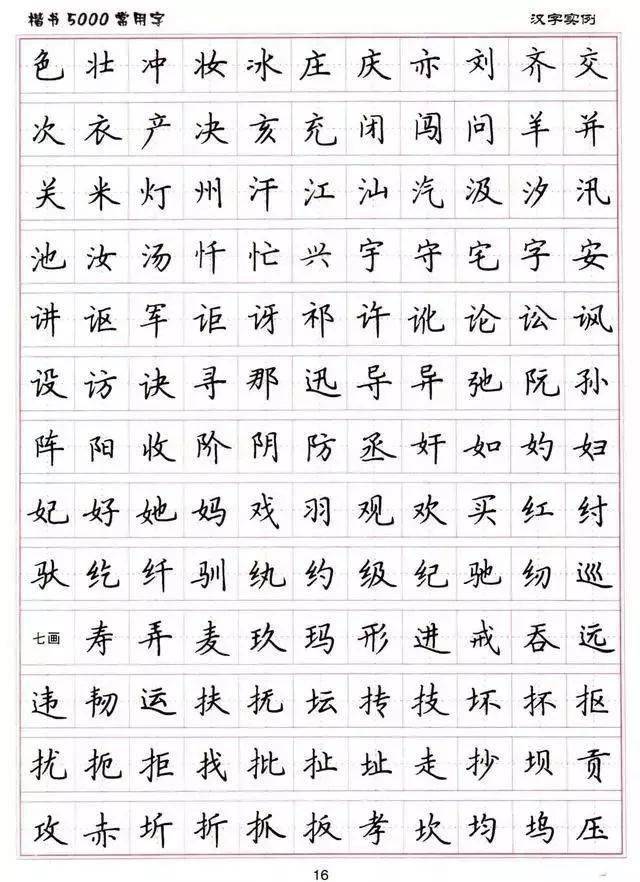 楷书5000常用字 汉字实例
色壮冲妆冰庄庆亦刘齐交
次衣产决亥充闭闯问羊并
关米灯州汗江汕汽汲汐汛
池汝汤忏忙兴宇守宅字安
讲讴军讵讶祁许讹论讼讽
设访诀寻那迅导异弛阮孙
阵阳收阶阴防丞奸如妁妇
妃好她妈戏羽观欢买红纣
驮纥纤驯纨约级纪驰纫巡
七画 寿弄麦玖玛形进戒吞远
违韧运扶抚坛抟技坏抔抠
扰扼拒找批扯址走抄坝贡
攻赤圻折抓扳孝坎均坞压
16